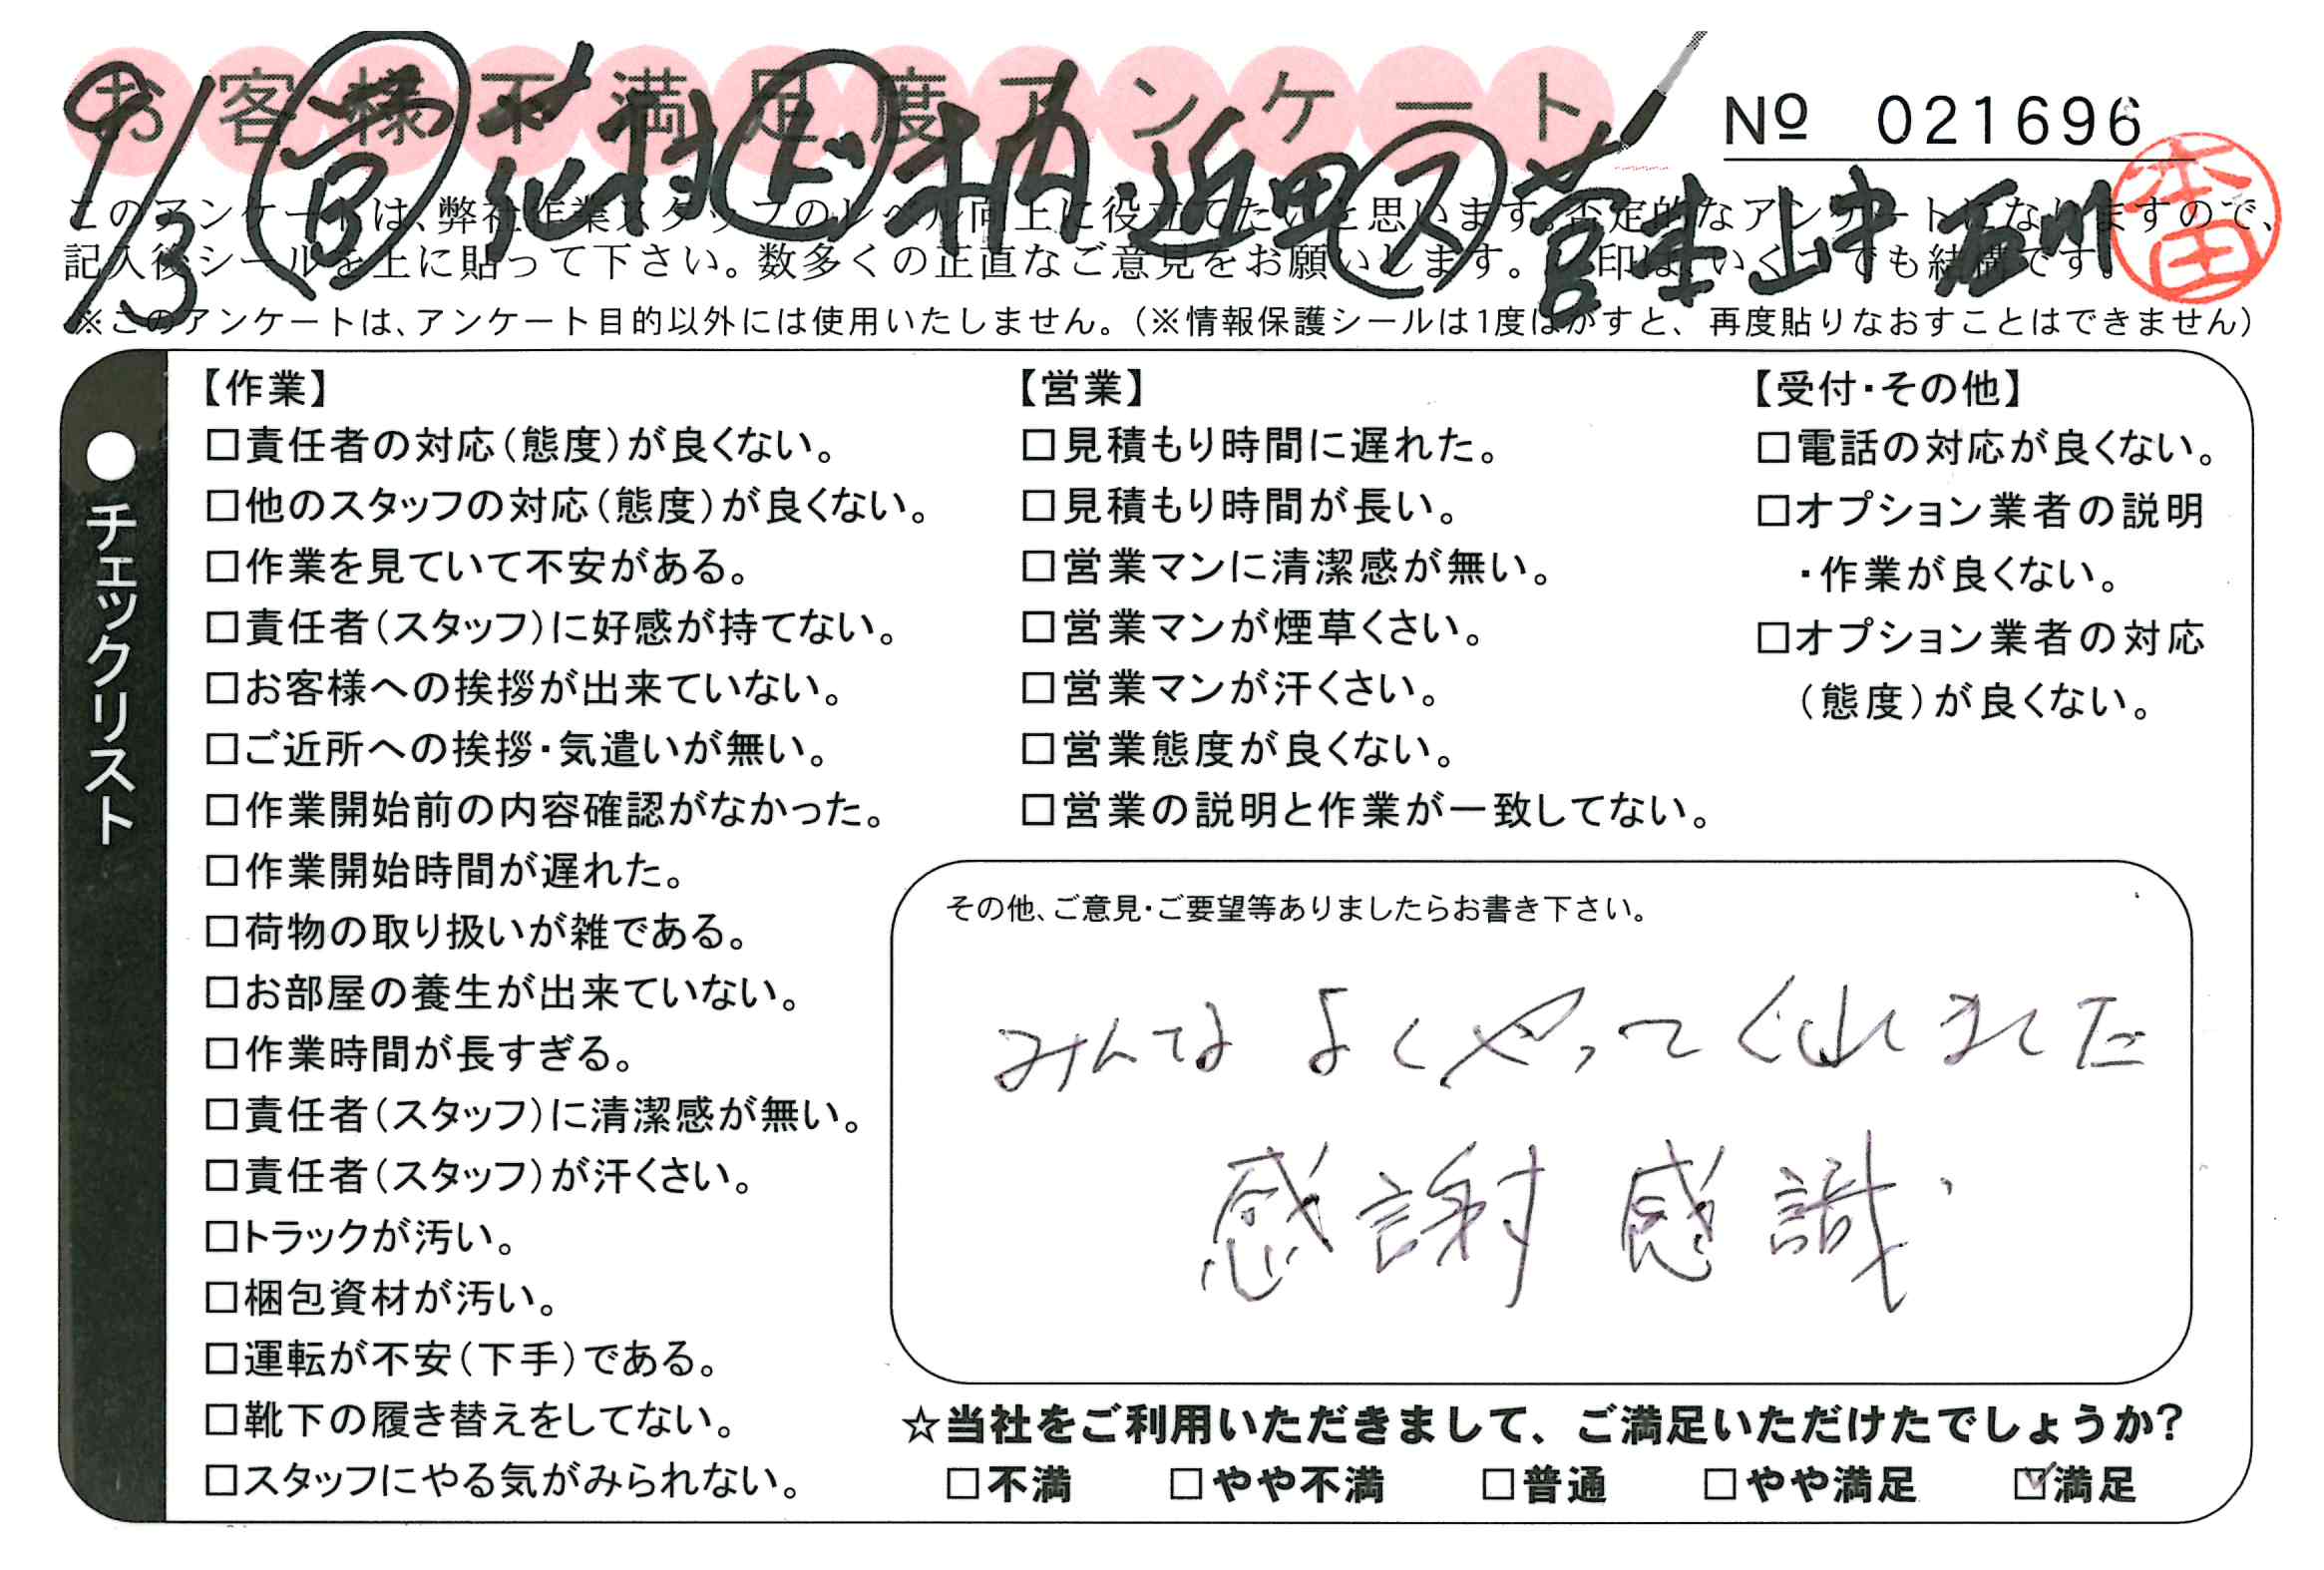 お客様不満足度アンケート
№ 021696
9/3 営B 花村 ド 柄 近田 ス 菅本 山中 石川
本田
このアンケートは、弊社作業スタッフのレベル向上に役立てたいと思います。否定的なアンケートになりますので、
記入後シールを上に貼って下さい。数多くの正直なご意見をお願いします。 印は、いくつでも結構です。
※このアンケートは、アンケート目的以外には使用いたしません。（※情報保護シールは1度はがすと、再度貼りなおすことはできません）
●チェックリスト
【作業】
□責任者の対応（態度）が良くない。
□他のスタッフの対応（態度）が良くない。
□作業を見ていて不安がある。
□責任者（スタッフ）に好感が持てない。
□お客様への挨拶が出来ていない。
□ご近所への挨拶・気遣いが無い。
□作業開始前の内容確認がなかった。
□作業開始時間が遅れた。
□荷物の取り扱いが雑である。
□お部屋の養生が出来ていない。
□作業時間が長すぎる。
□責任者（スタッフ）に清潔感が無い。
□責任者（スタッフ）が汗くさい。
□トラックが汚い。
□梱包資材が汚い。
□運転が不安（下手）である。
□靴下の履き替えをしてない。
□スタッフにやる気がみられない。
【営業】
□見積もり時間に遅れた。
□見積もり時間が長い。
□営業マンに清潔感が無い。
□営業マンが煙草くさい。
□営業マンが汗くさい。
□営業態度が良くない。
□営業の説明と作業が一致してない。
【受付・その他】
□電話の対応が良くない。
□オプション業者の説明
・作業が良くない。
□オプション業者の対応
（態度）が良くない。
その他、ご意見・ご要望等ありましたらお書き下さい。
みんなよくやってくれました
感謝 感識、
☆当社をご利用いただきまして、ご満足いただけたでしょうか?
□不満 □やや不満 □普通 □やや満足 ☑満足